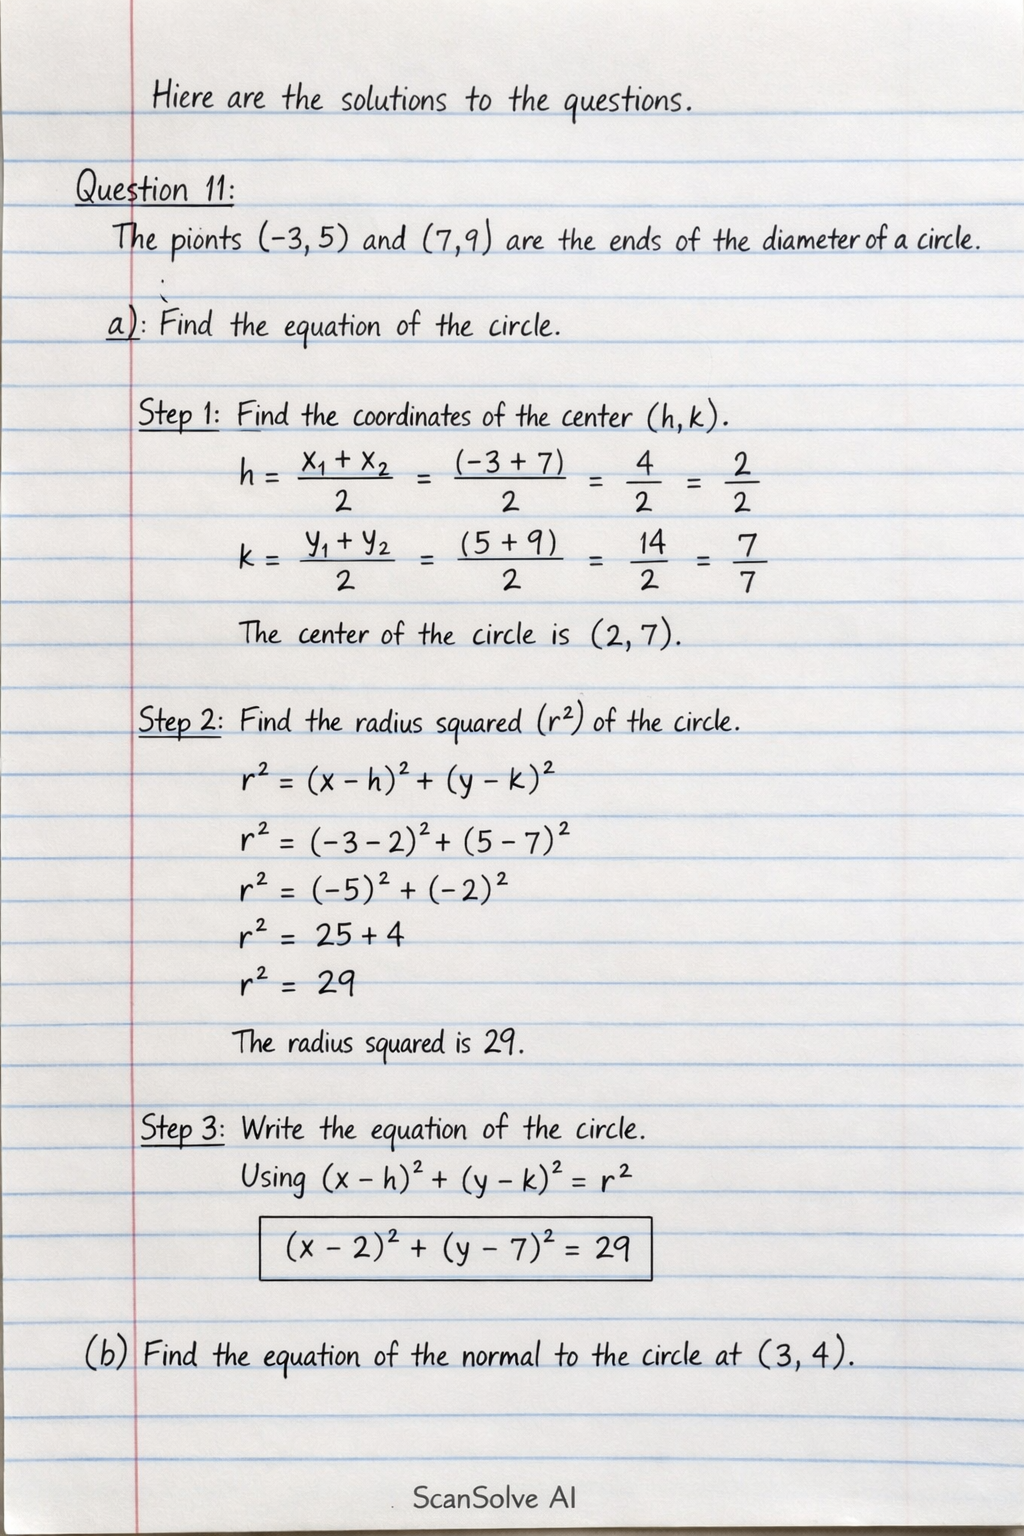 Hiere are the solutions to the questions.
Question 11:
The pionts (-3, 5) and (7,9) are the ends of the diameter of a circle.
a): Find the equation of the circle.
Step 1: Find the coordinates of the center (h, k).
h = (x₁ + x₂)/2 = (-3 + 7)/2 = 4/2 = 2/2
k = (y₁ + y₂)/2 = (5 + 9)/2 = 14/2 = 7/7
The center of the circle is (2, 7).
Step 2: Find the radius squared (r²) of the circle.
r² = (x - h)² + (y - k)²
r² = (-3 - 2)² + (5 - 7)²
r² = (-5)² + (-2)²
r² = 25 + 4
r² = 29
The radius squared is 29.
Step 3: Write the equation of the circle.
Using (x - h)² + (y - k)² = r²
(x - 2)² + (y - 7)² = 29
(b) Find the equation of the normal to the circle at (3, 4).
ScanSolve AI